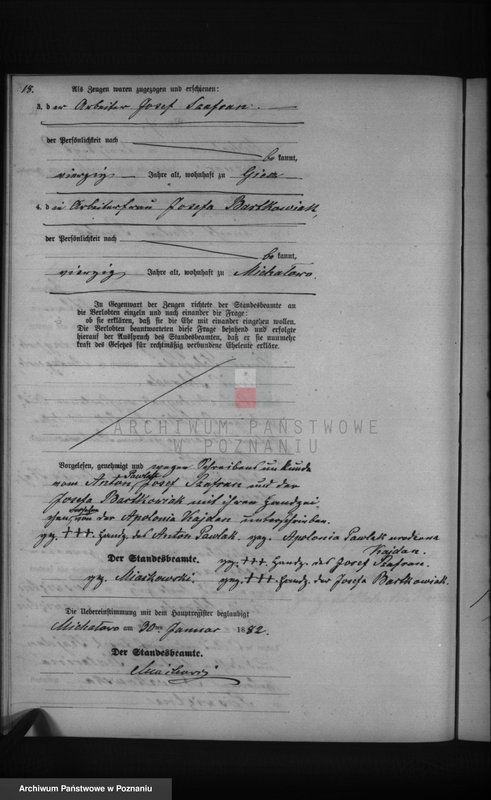 18.
Als Zeugen waren zugezogen und erschienen:
3. der Arbeiter Josef Szafran.
der Persönlichkeit nach
be kannt,
vierzig Jahre alt, wohnhaft zu Giecz
4. die Arbeiterfrau Josefa Bartkowiak,
der Persönlichkeit nach
be kannt,
vierzig Jahre alt, wohnhaft zu Michałowo.
In Gegenwart der Zeugen richtete der Standesbeamte an
die Verlobten einzeln und nach einander die Frage:
ob sie erklären, daß sie die Ehe mit einander eingehen wollen.
Die Verlobten beantworteten diese Frage bejahend und erfolgte
hierauf der Ausspruch des Standesbeamten, daß er sie nunmehr
kraft des Gesetzes für rechtmäßig verbundene Eheleute erkläre.
ARCHIWUM PAŃSTWOWE
W POZNANIU
Vorgelesen, genehmigt und wegen Schreibensunkunde
vom Anton Pawlak, Josef Szafran und der
Josefa Bartkowiak mit ihren Handzei-
chen, von der Apolonia Kajdan unterschrieben.
gez. +++ Handz. des Anton Pawlak. gez. Apolonia Pawlak
Kajdan.
Der Standesbeamte. gez. +++ Handz. des Josef Szafran.
gez. Miaskowski. gez. +++ Handz. der Josefa Bartkowiak.
Die Uebereinstimmung mit dem Hauptregister beglaubigt
Michałowo am 30ten Januar 1882.
Der Standesbeamte.
Archiwum Państwowe w Poznaniu